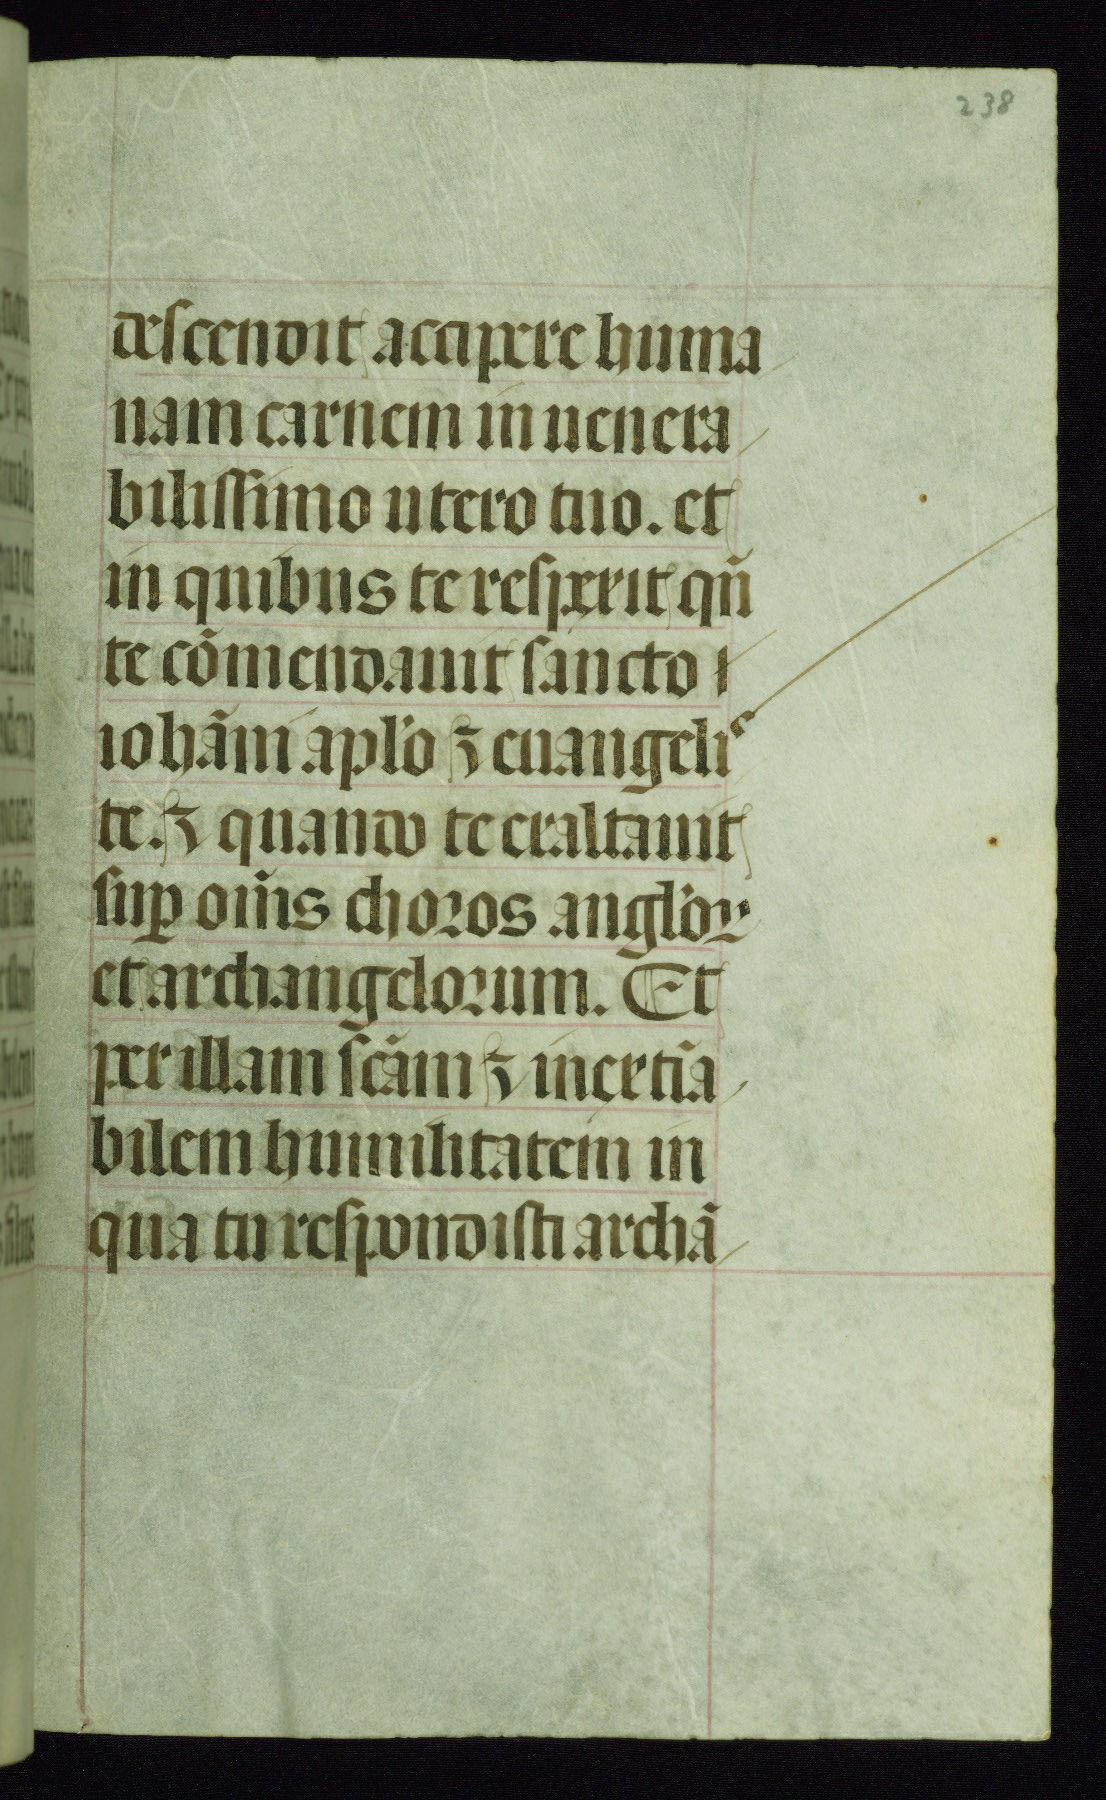 238
descendit accipere huma
nam carnem in uenera
bilissimo utero tuo. et
in quibus te respexit qn̄
te cōmendauit sancto i
iohāni apl'o ⁊ euangelis
te. ⁊ quando te exaltauit
suꝑ om̄s choros angl'oꝝ
et archangelorum. Et
per illam scām ⁊ inextīa
bilem humilitatem in
qua tu respondisti archā